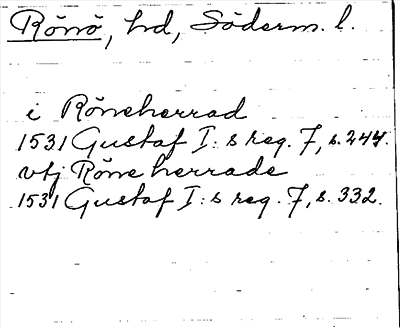 Rönö, hd, Söderm. l.
i Röneherrad
1531 Gustaf I:s reg. 7, s. 244.
vtj Röne herrade
1531 Gustaf I:s reg. 7, s. 332.